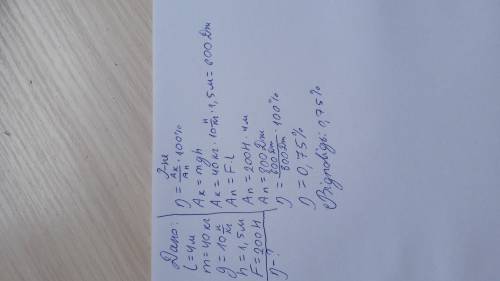 Дано:
l = 4м
m = 40 кг
g = 10 н/кг
h = 1,5м
F = 200Н
η - ?
η = Aк/Aп · 100%
Aк = mgh
Aк = 40 кг · 10 н/кг · 1,5м = 600 Дж
Aп = Fl
Aп = 200Н · 4м
Aп = 800 Дж
η = 600 Дж/800 Дж · 100%
η = 0,75%
Відповідь: 0,75%